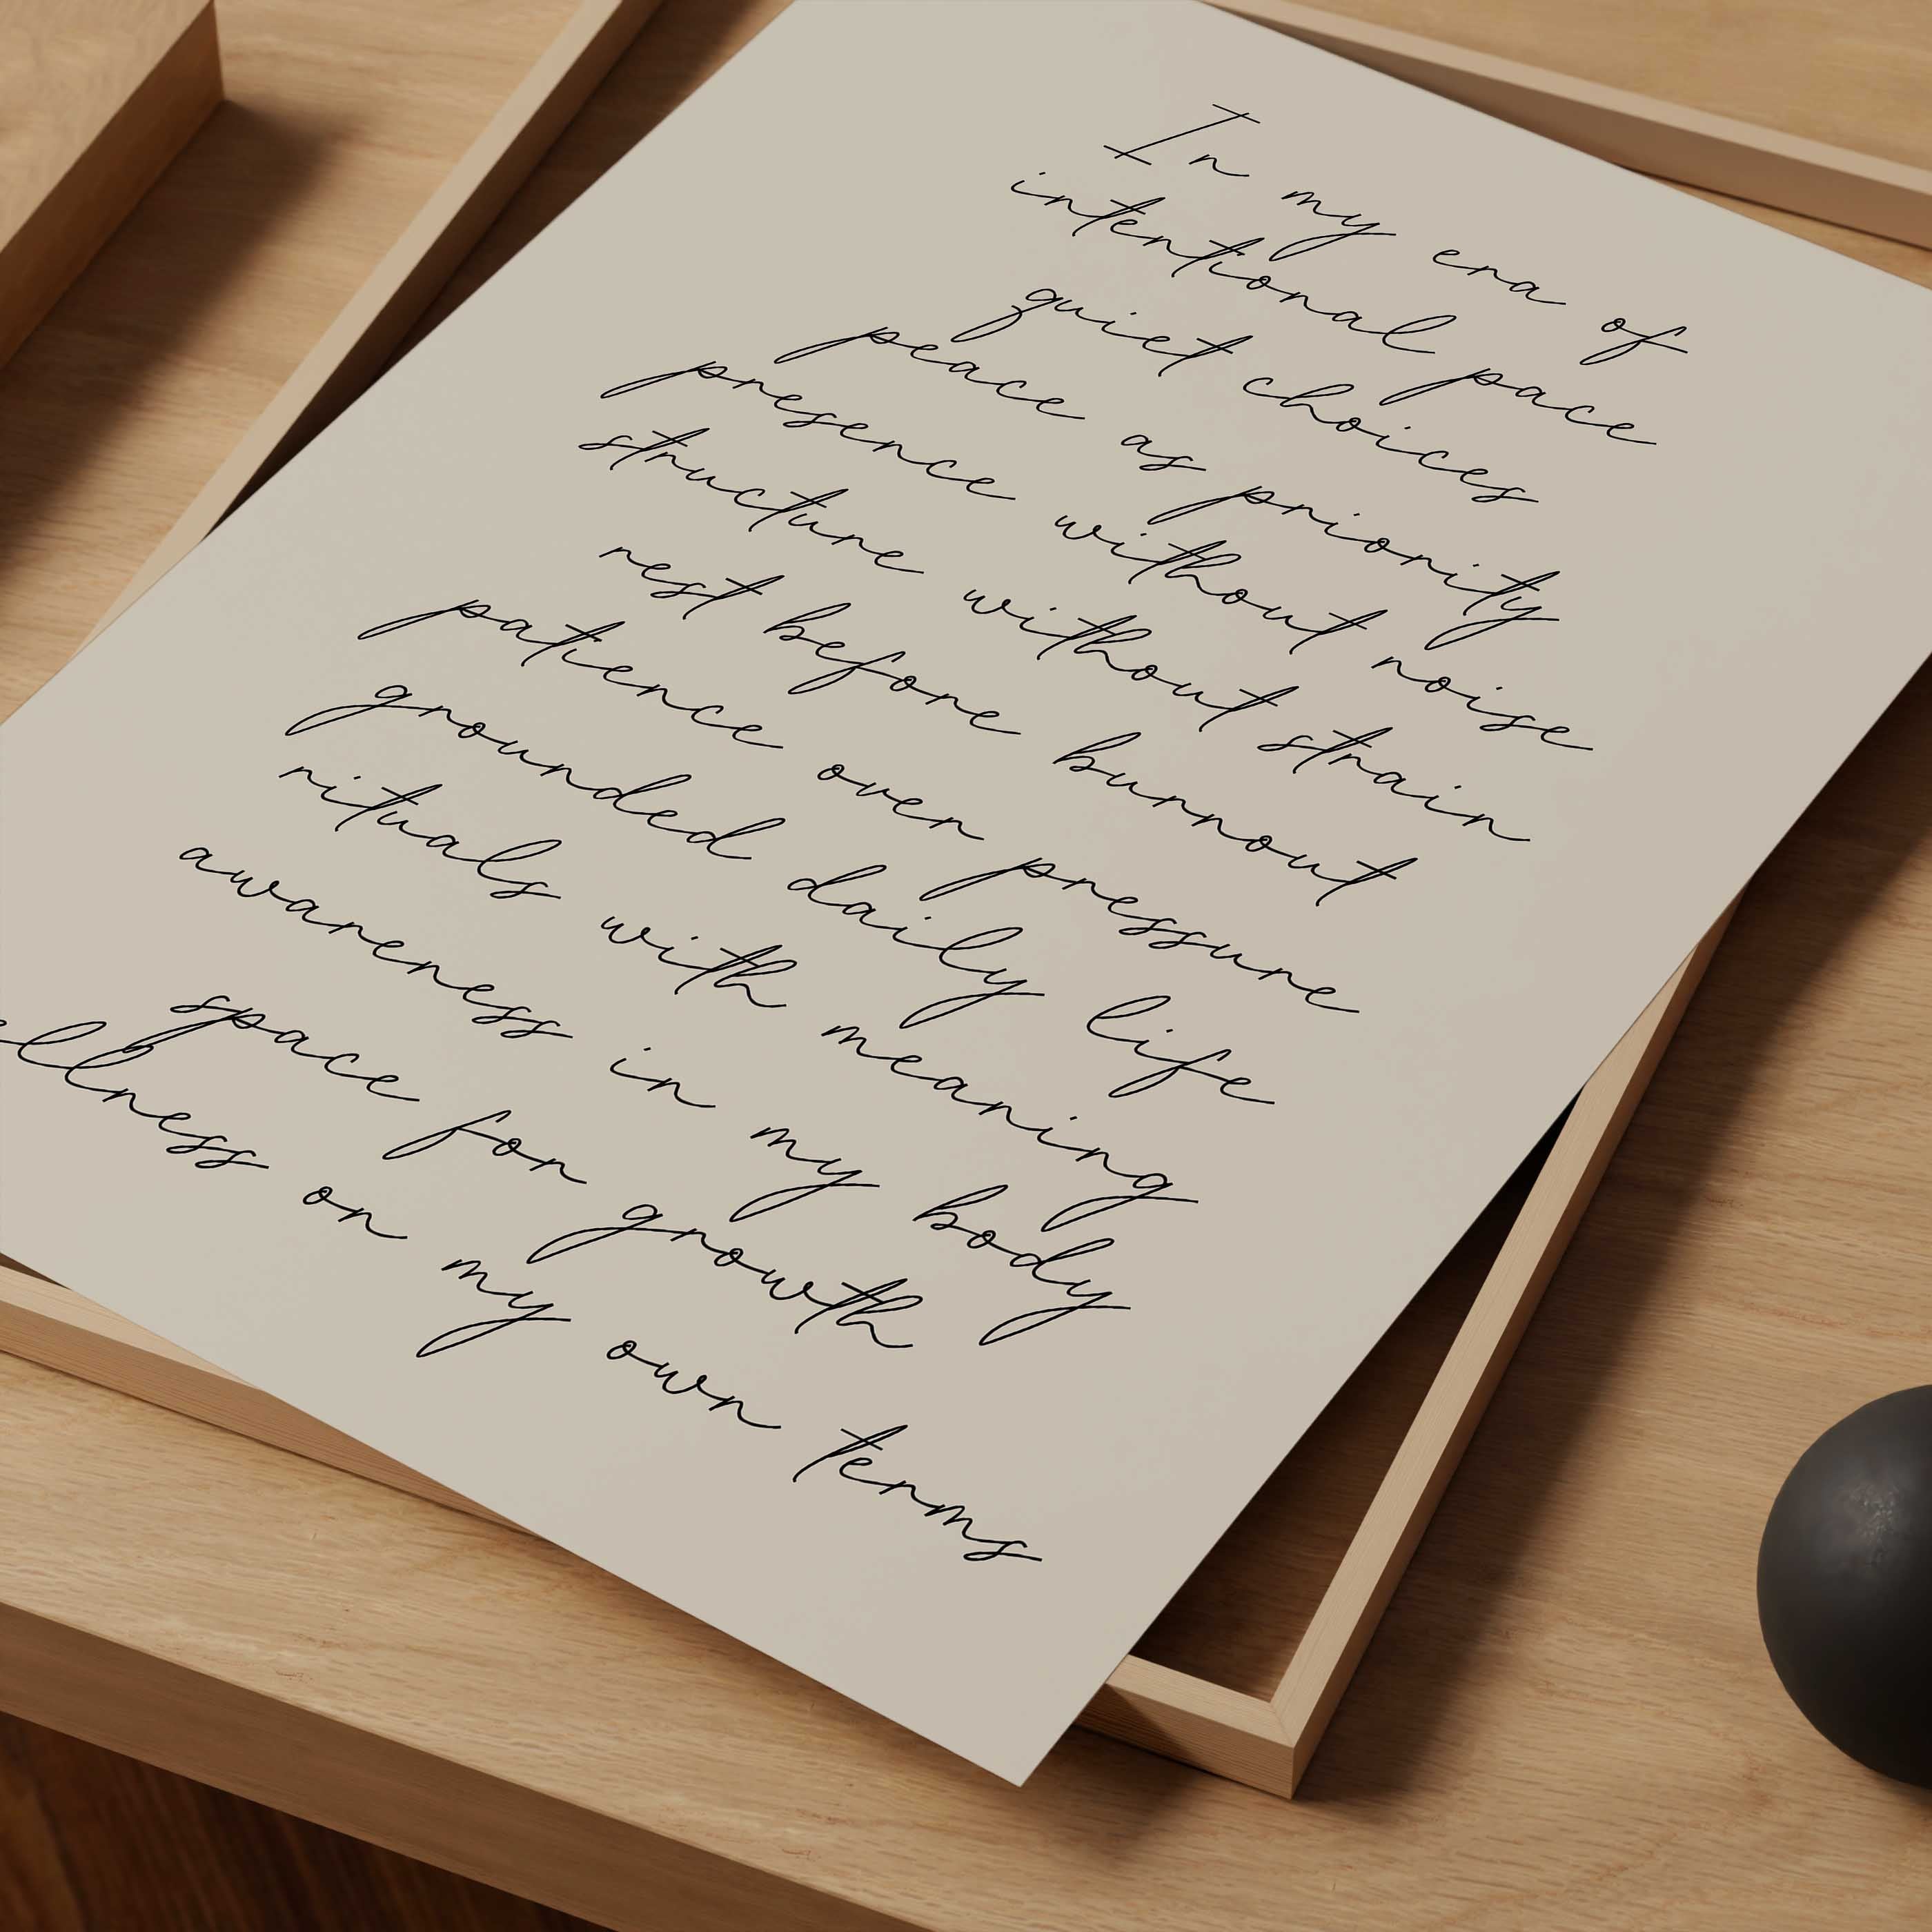 In my era of
intentional pace
quiet choices
peace as priority
presence without noise
structure without strain
rest before burnout
patience over pressure
grounded daily life
rituals with meaning
awareness in my body
space for growth
ellness on my own terms